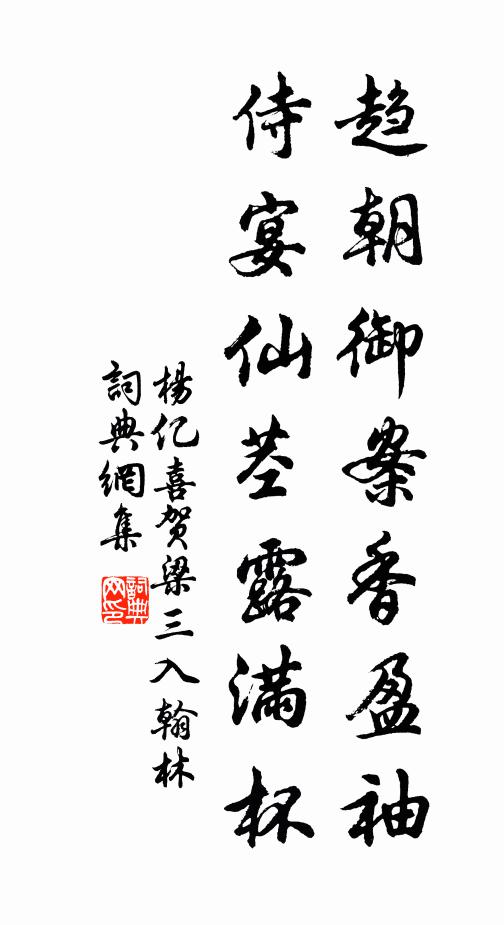 趋朝御案香盈袖
侍宴仙茎露满杯
杨亿喜贺梁三入翰林
詞典網集